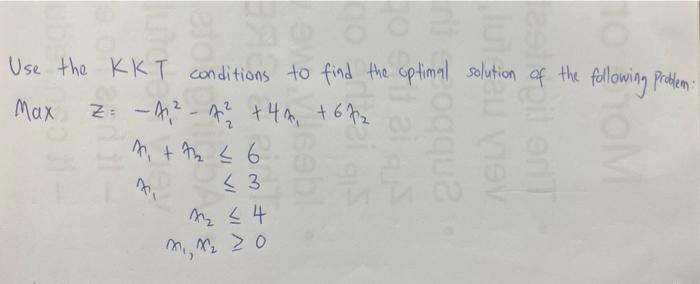 Use the KKT conditions to find the optimal solution of the following problem:
Max Z = -x₁² - x₂² + 4x₁ + 6x₂
x₁ + x₂ ≤ 6
x₁ ≤ 3
x₂ ≤ 4
x₁, x₂ ≥ 0